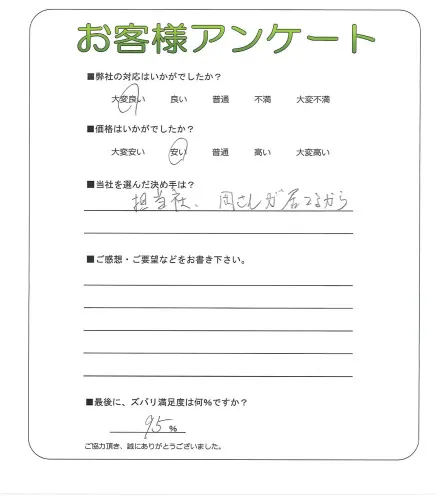 お客様アンケート
■弊社の対応はいかがでしたか？
大変良い 良い 普通 不満 大変不満
■価格はいかがでしたか？
大変安い 安い 普通 高い 大変高い
■当社を選んだ決め手は？
担当社、岡さんが居てるから
■ご感想・ご要望などをお書き下さい。
■最後に、ズバリ満足度は何％ですか？
95 %
ご協力頂き、誠にありがとうございました。